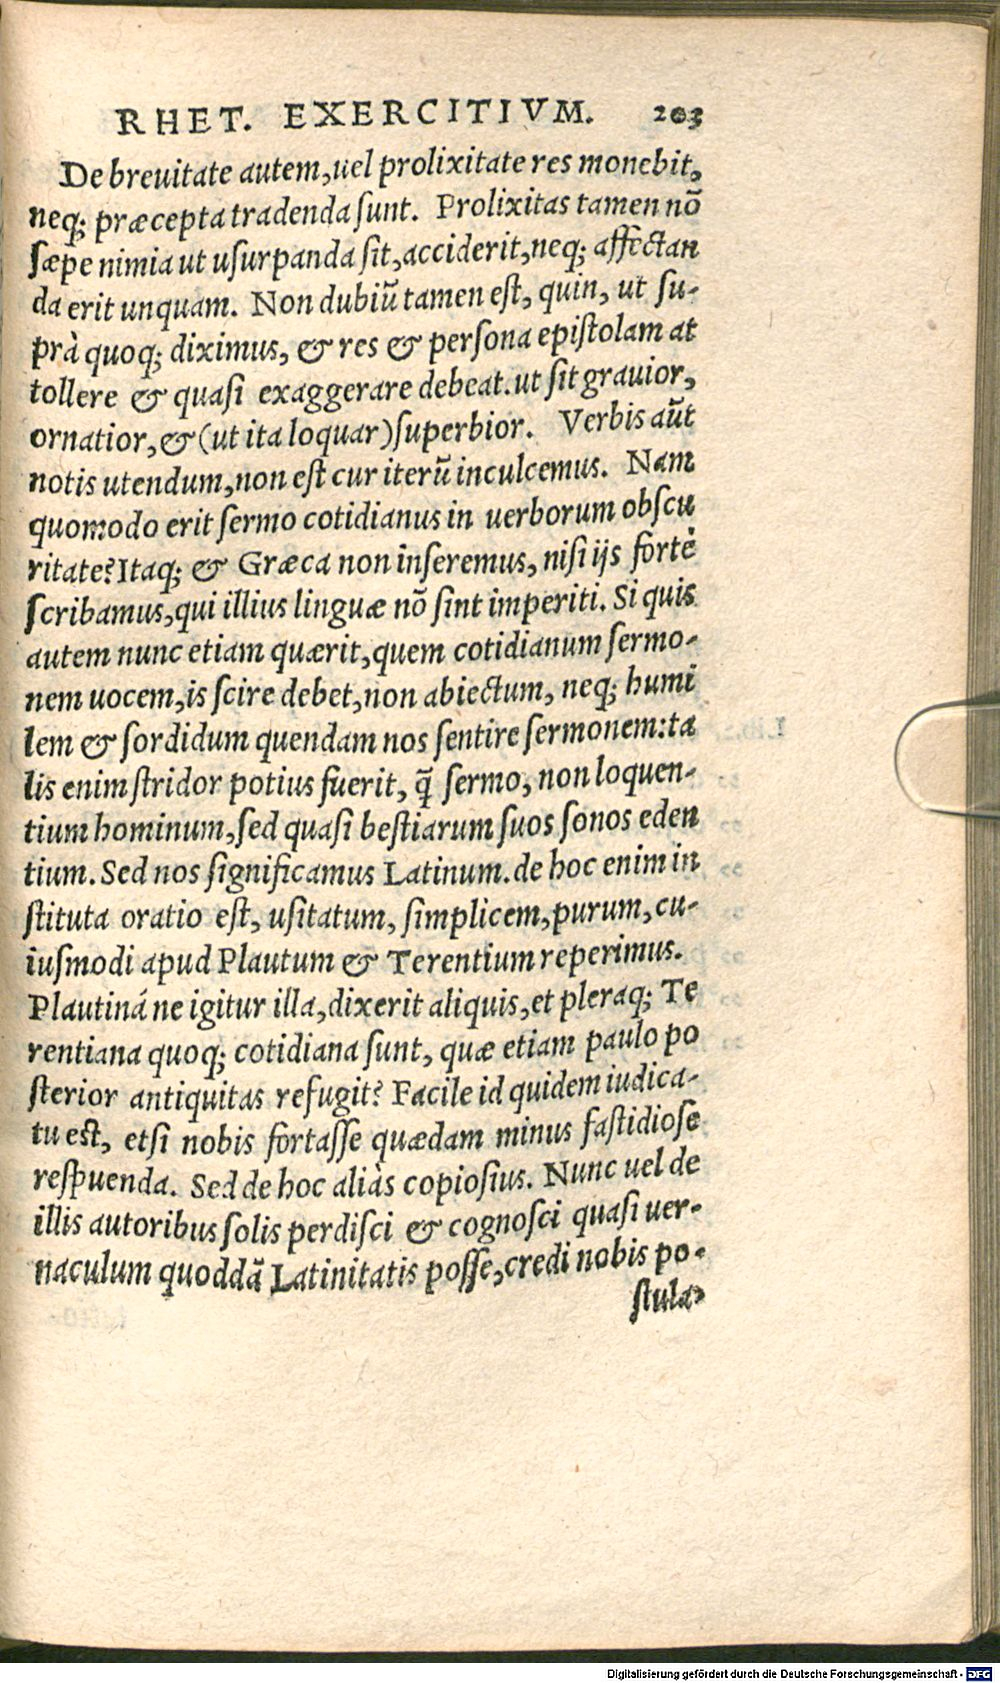 RHET. EXERCITIVM. 203
De breuitate autem, uel prolixitate res monebit,
neq; præcepta tradenda sunt. Prolixitas tamen nõ
sæpe nimia ut usurpanda sit, acciderit, neq; affectan
da erit unquam. Non dubiũ tamen est, quin, ut su-
prà quoq; diximus, & res & persona epistolam at
tollere & quasi exaggerare debeat. ut sit grauior,
ornatior, & (ut ita loquar) superbior. Verbis aũt
notis utendum, non est cur iterũ inculcemus. Nam
quomodo erit sermo cotidianus in uerborum obscu
ritate? Itaq; & Græca non inseremus, nisi ijs fortè
scribamus, qui illius linguæ nõ sint imperiti. Si quis
autem nunc etiam quærit, quem cotidianum sermo-
nem uocem, is scire debet, non abiectum, neq; humi
lem & sordidum quendam nos sentire sermonem: ta
lis enim stridor potius fuerit, q̃ sermo, non loquen-
tium hominum, sed quasi bestiarum suos sonos eden
tium. Sed nos significamus Latinum. de hoc enim in
stituta oratio est, usitatum, simplicem, purum, cu-
iusmodi apud Plautum & Terentium reperimus.
Plautinán e igitur illa, dixerit aliquis, et pleraq; Te
rentiana quoq; cotidiana sunt, quæ etiam paulo po
sterior antiquitas refugit? Facile id quidem iudica-
tu est, etsi nobis fortasse quædam minus fastidiose
respuenda. Sed de hoc aliàs copiosius. Nunc uel de
illis autoribus solis perdisci & cognosci quasi uer-
naculum quoddã Latinitatis posse, credi nobis po-
stula-
Digitalisierung gefördert durch die Deutsche Forschungsgemeinschaft - DFG